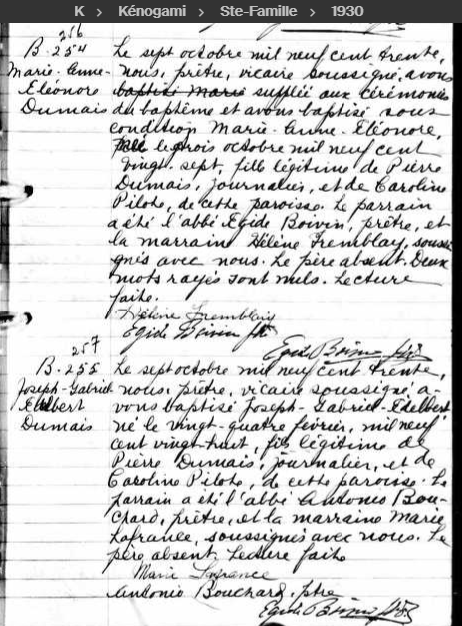 K > Kénogami > Ste-Famille > 1930
256
B. 254
Marie-Anne-
Eléonore
Dumais
Le sept octobre mil neuf cent trente,
nous, prêtre, vicaire soussigné, avons
baptisé Marie suppléé aux cérémonies
du baptême et avons baptisé sous
condition Marie-Anne-Eléonore,
née le trois octobre mil neuf cent
vingt-sept, fille légitime de Pierre
Dumais, journalier, et de Caroline
Pilote, de cette paroisse. Le parrain
a été l'abbé Egide Boivin, prêtre, et
la marraine Hélène Tremblay, soussi
gnés avec nous. Le père absent. Deux
mots rayés sont nuls. Lecture
faite.
Hélène Tremblay
Egide Boivin ptre
Egide Boivin ptre
257
B. 255
Joseph-Gabriel
Edelbert
Dumais
Le sept octobre mil neuf cent trente,
nous, prêtre, vicaire soussigné a-
vons baptisé Joseph-Gabriel-Edelbert
né le vingt-quatre février, mil neuf
cent vingt-huit, fils légitime de
Pierre Dumais, journalier, et de
Caroline Pilote, de cette paroisse. Le
parrain a été l'abbé Antonio Bou-
chard, prêtre, et la marraine Marie
Lafrance, soussignés avec nous. Le
père absent. Lecture faite
Marie Lafrance
Antonio Bouchard, ptre
Egide Boivin ptre